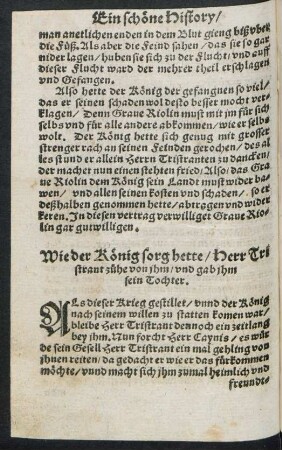 Ein schöne History/
man anetlichen enden in dem Blut gieng biß vber
die Füß. Als aber die Feind sahen/ das sie so gar
nider lagen/ huben sie sich zu der Flucht/ vnd auff
dieser Flucht ward der mehrer theil erschlagen
vnd Gefangen.
Also hette der König der gefangnen so viel/
das er seinen schaden wol desto besser mocht ver-
klagen/ Denn Graue Riolin must mit jm für sich
selbs vnd für alle andere abkommen/ wie er selbs
wolt. Der König hette sich genug mit grosser
strenger rach an seinen Feinden gerochen/ des al
les stund er allein Herrn Tristranten zu dancken/
der macht nun einen stehten fried/ Also/ das Gra
ue Riolin dem König sein Landt must wider ba-
wen/ vnd allen seinen kosten vnd schaden/ so er
deßhalben genommen hette/ abtragen vnd wider
keren. In diesen vertrag verwilliget Graue Rio-
lin gar gutwilligen.
Wie der König sorg hette/ Herr Tri
strant zühe von jhm/ vnd gab jhm
sein Tochter.
Als dieser Krieg gestillet/ vnnd der König
nach seinem willen zu statten komen war/
bleibe Herr Tristrant dennoch ein zeitlang
bey jhm. Nun forcht Herr Caynis/ es wür
de sein Gesell Herr Tristrant ein mal gehling von
jhnen reiten/ da gedacht er wie er das fürkommen
möchte/ vnnd macht sich jhm zumal heimlich vnd
freundt-